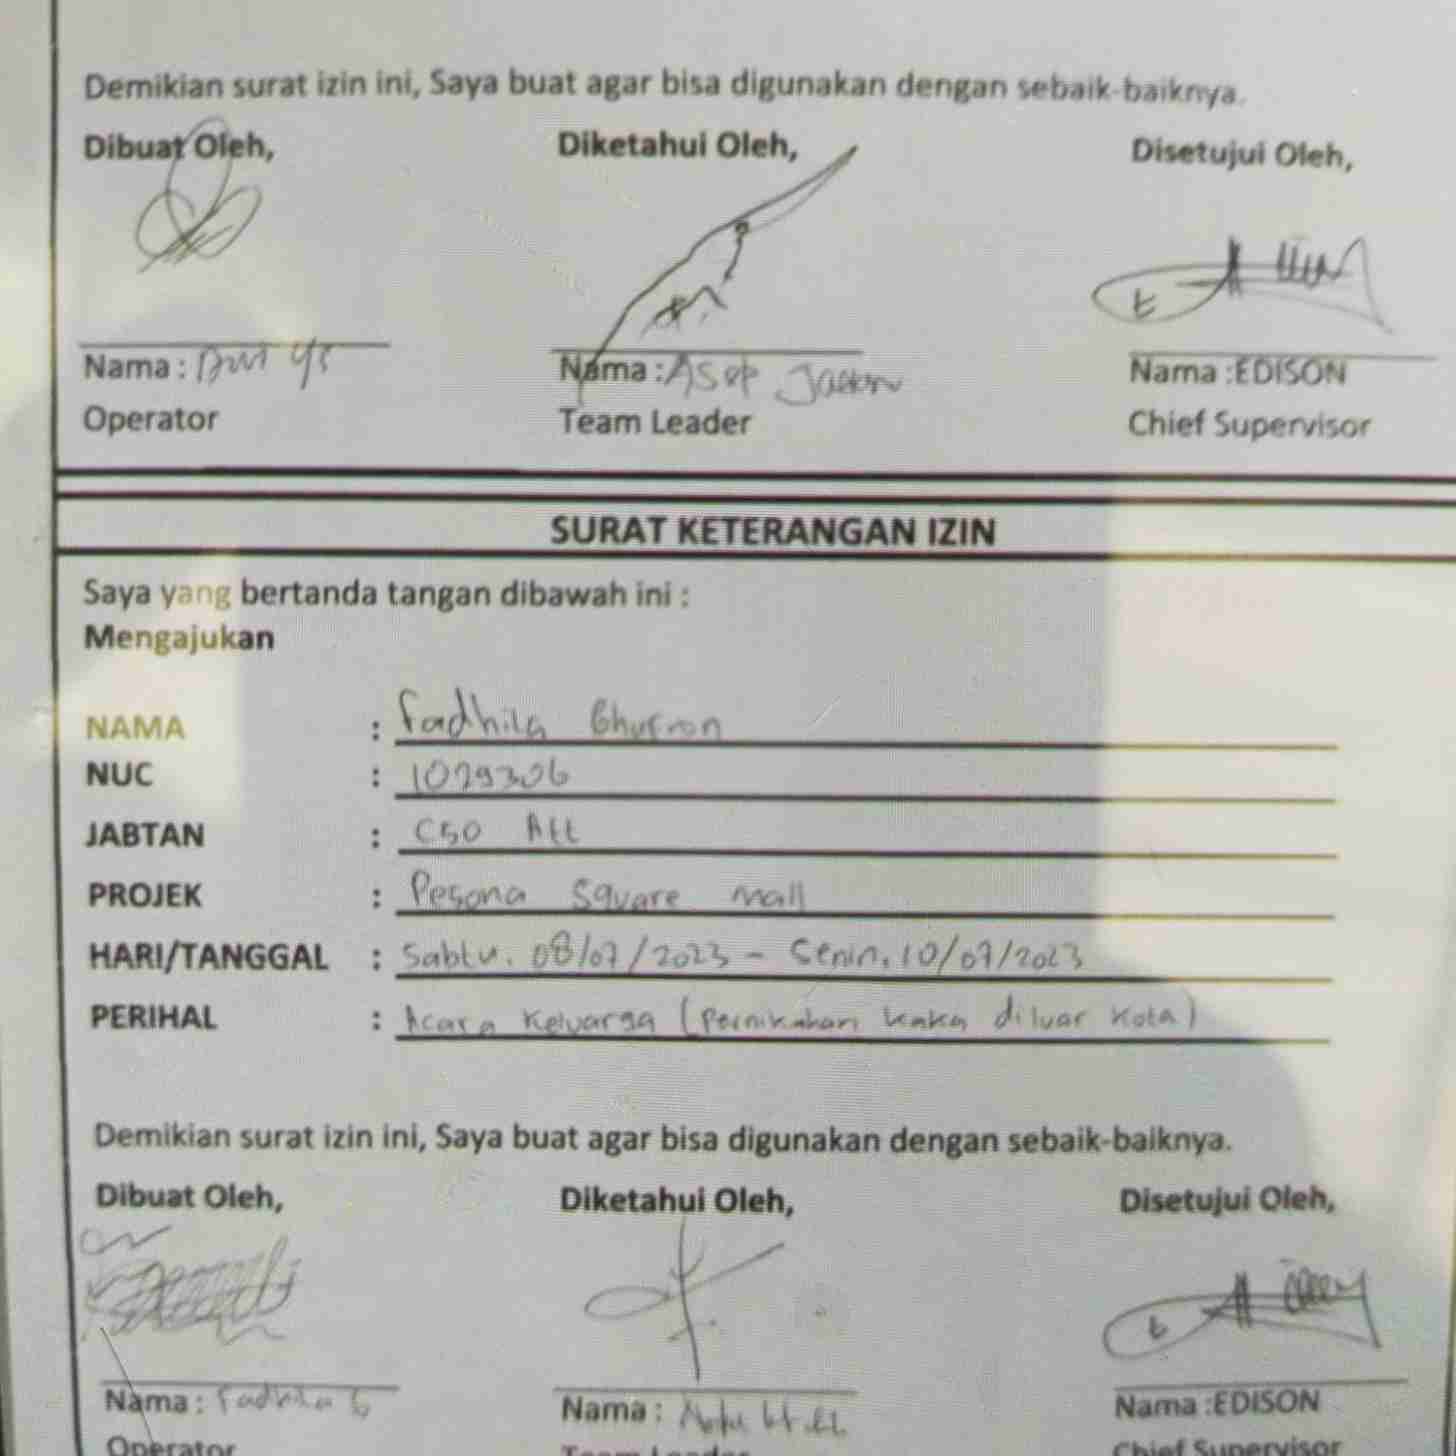 Demikian surat izin ini, Saya buat agar bisa digunakan dengan sebaik-baiknya.
Dibuat Oleh, Diketahui Oleh, Disetujui Oleh,
Nama : Nama : Asep Nama :EDISON
Operator Team Leader Chief Supervisor
SURAT KETERANGAN IZIN
Saya yang bertanda tangan dibawah ini :
Mengajukan
NAMA : Fadhila Ghufron
NUC : 1029306
JABTAN : CSO
PROJEK : Pesona Square Mall
HARI/TANGGAL : Sabtu. 08/07/2023 - Senin. 10/07/2023
PERIHAL : Acara Keluarga (Pernikahan kaka diluar kota)
Demikian surat izin ini, Saya buat agar bisa digunakan dengan sebaik-baiknya.
Dibuat Oleh, Diketahui Oleh, Disetujui Oleh,
Nama : Fadhila G Nama : Nama :EDISON
Operator Team Leader Chief Supervisor